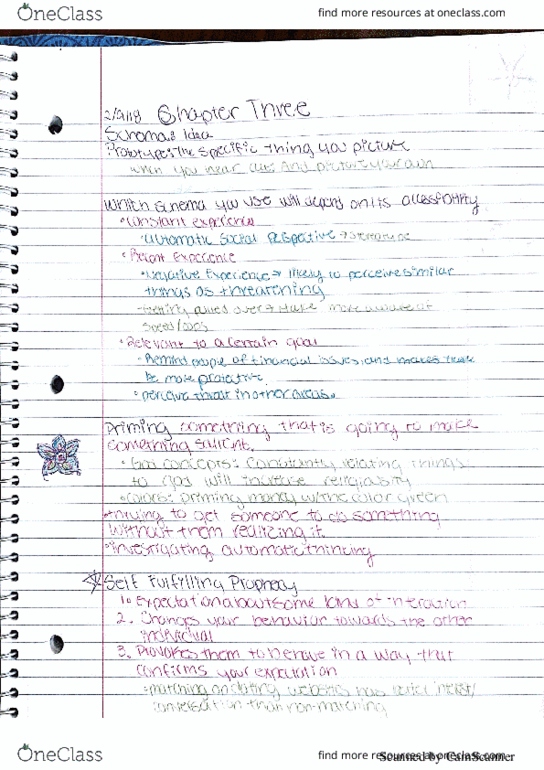 OneClass
find more resources at oneclass.com
2/9/18 Chapter Three
Schemas: Idea
Prototype: The specific thing you picture
when you hear cues and picture your own
Which schema you use will depend on its accessibility
• constant experience
• automatic social perspective → stereotype
• Recent Experience
• Negative Experience → likely to perceive similar
things as threatening
• Getting pulled over → more aware of
speed/cops
• Relevant to a certain goal
• Remind people of financial issues and makes them
be more protective
• perceive threat in other areas.
Priming something that is going to make
something salient.
• God concepts: constantly relating things
to god will increase religiosity
• colors: priming money w/ the color green
• trying to get someone to do something
without them realizing it.
• investigating automatic thinking
Self Fulfilling Prophecy
1. Expectation about some kind of interaction
2. Changes your behavior towards the other
individual
3. Provokes them to behave in a way that
confirms your expectation
• matching on dating websites has
conversation than non-matching
OneClass
find more resources at oneclass.com
Scanned by CamScanner